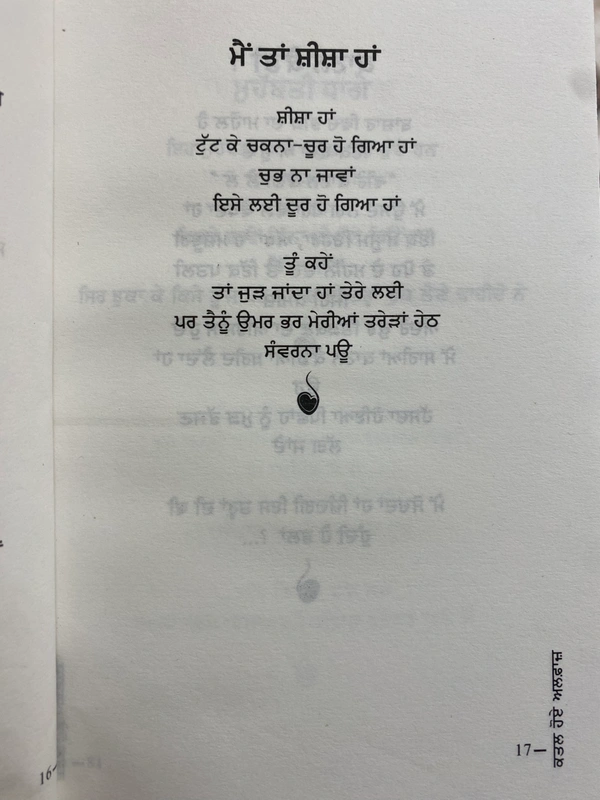 ਮੈਂ ਤਾਂ ਸ਼ੀਸ਼ਾ ਹਾਂ
ਸ਼ੀਸ਼ਾ ਹਾਂ
ਟੁੱਟ ਕੇ ਚਕਨਾ-ਚੂਰ ਹੋ ਗਿਆ ਹਾਂ
ਚੁਭ ਨਾ ਜਾਵਾਂ
ਇਸੇ ਲਈ ਦੂਰ ਹੋ ਗਿਆ ਹਾਂ
ਤੂੰ ਕਹੇਂ
ਤਾਂ ਜੁੜ ਜਾਂਦਾ ਹਾਂ ਤੇਰੇ ਲਈ
ਪਰ ਤੈਨੂੰ ਉਮਰ ਭਰ ਮੇਰੀਆਂ ਤਰੇੜਾਂ ਹੇਠ
ਸੰਵਰਨਾ ਪਊ
17—
ਕਤਲ ਹੋਏ ਅਲਫ਼ਾਜ਼
16